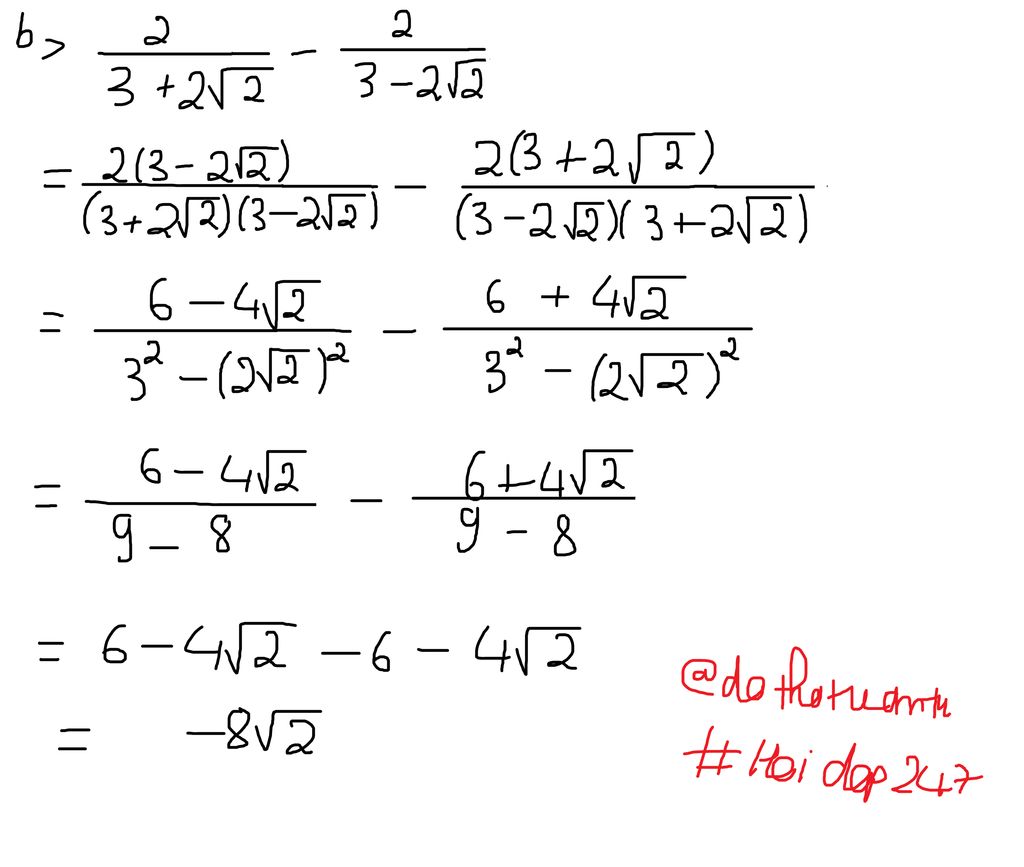 b> 2/(3+2√2) − 2/(3−2√2)
= 2(3−2√2)/((3+2√2)(3−2√2)) − 2(3+2√2)/((3−2√2)(3+2√2))
= (6−4√2)/(3²−(2√2)²) − (6+4√2)/(3²−(2√2)²)
= (6−4√2)/(9−8) − (6+4√2)/(9−8)
= 6−4√2−6−4√2
= −8√2
#Hoidap247